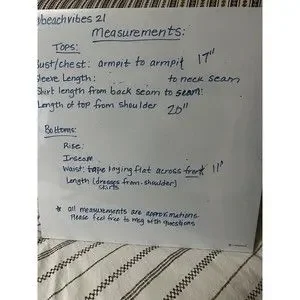 beachvibes 21
Measurements:
Tops:
Bust/chest: armpit to armpit 17"
Sleeve Length: to neck seam
Shirt length from back seam to seam:
Length of top from shoulder 20"
Bottoms:
Rise:
Inseam
Waist: tape laying flat across front 11"
Length (dresses from shoulder)
skirts
* all measurements are approximations.
Please feel free to msg with questions